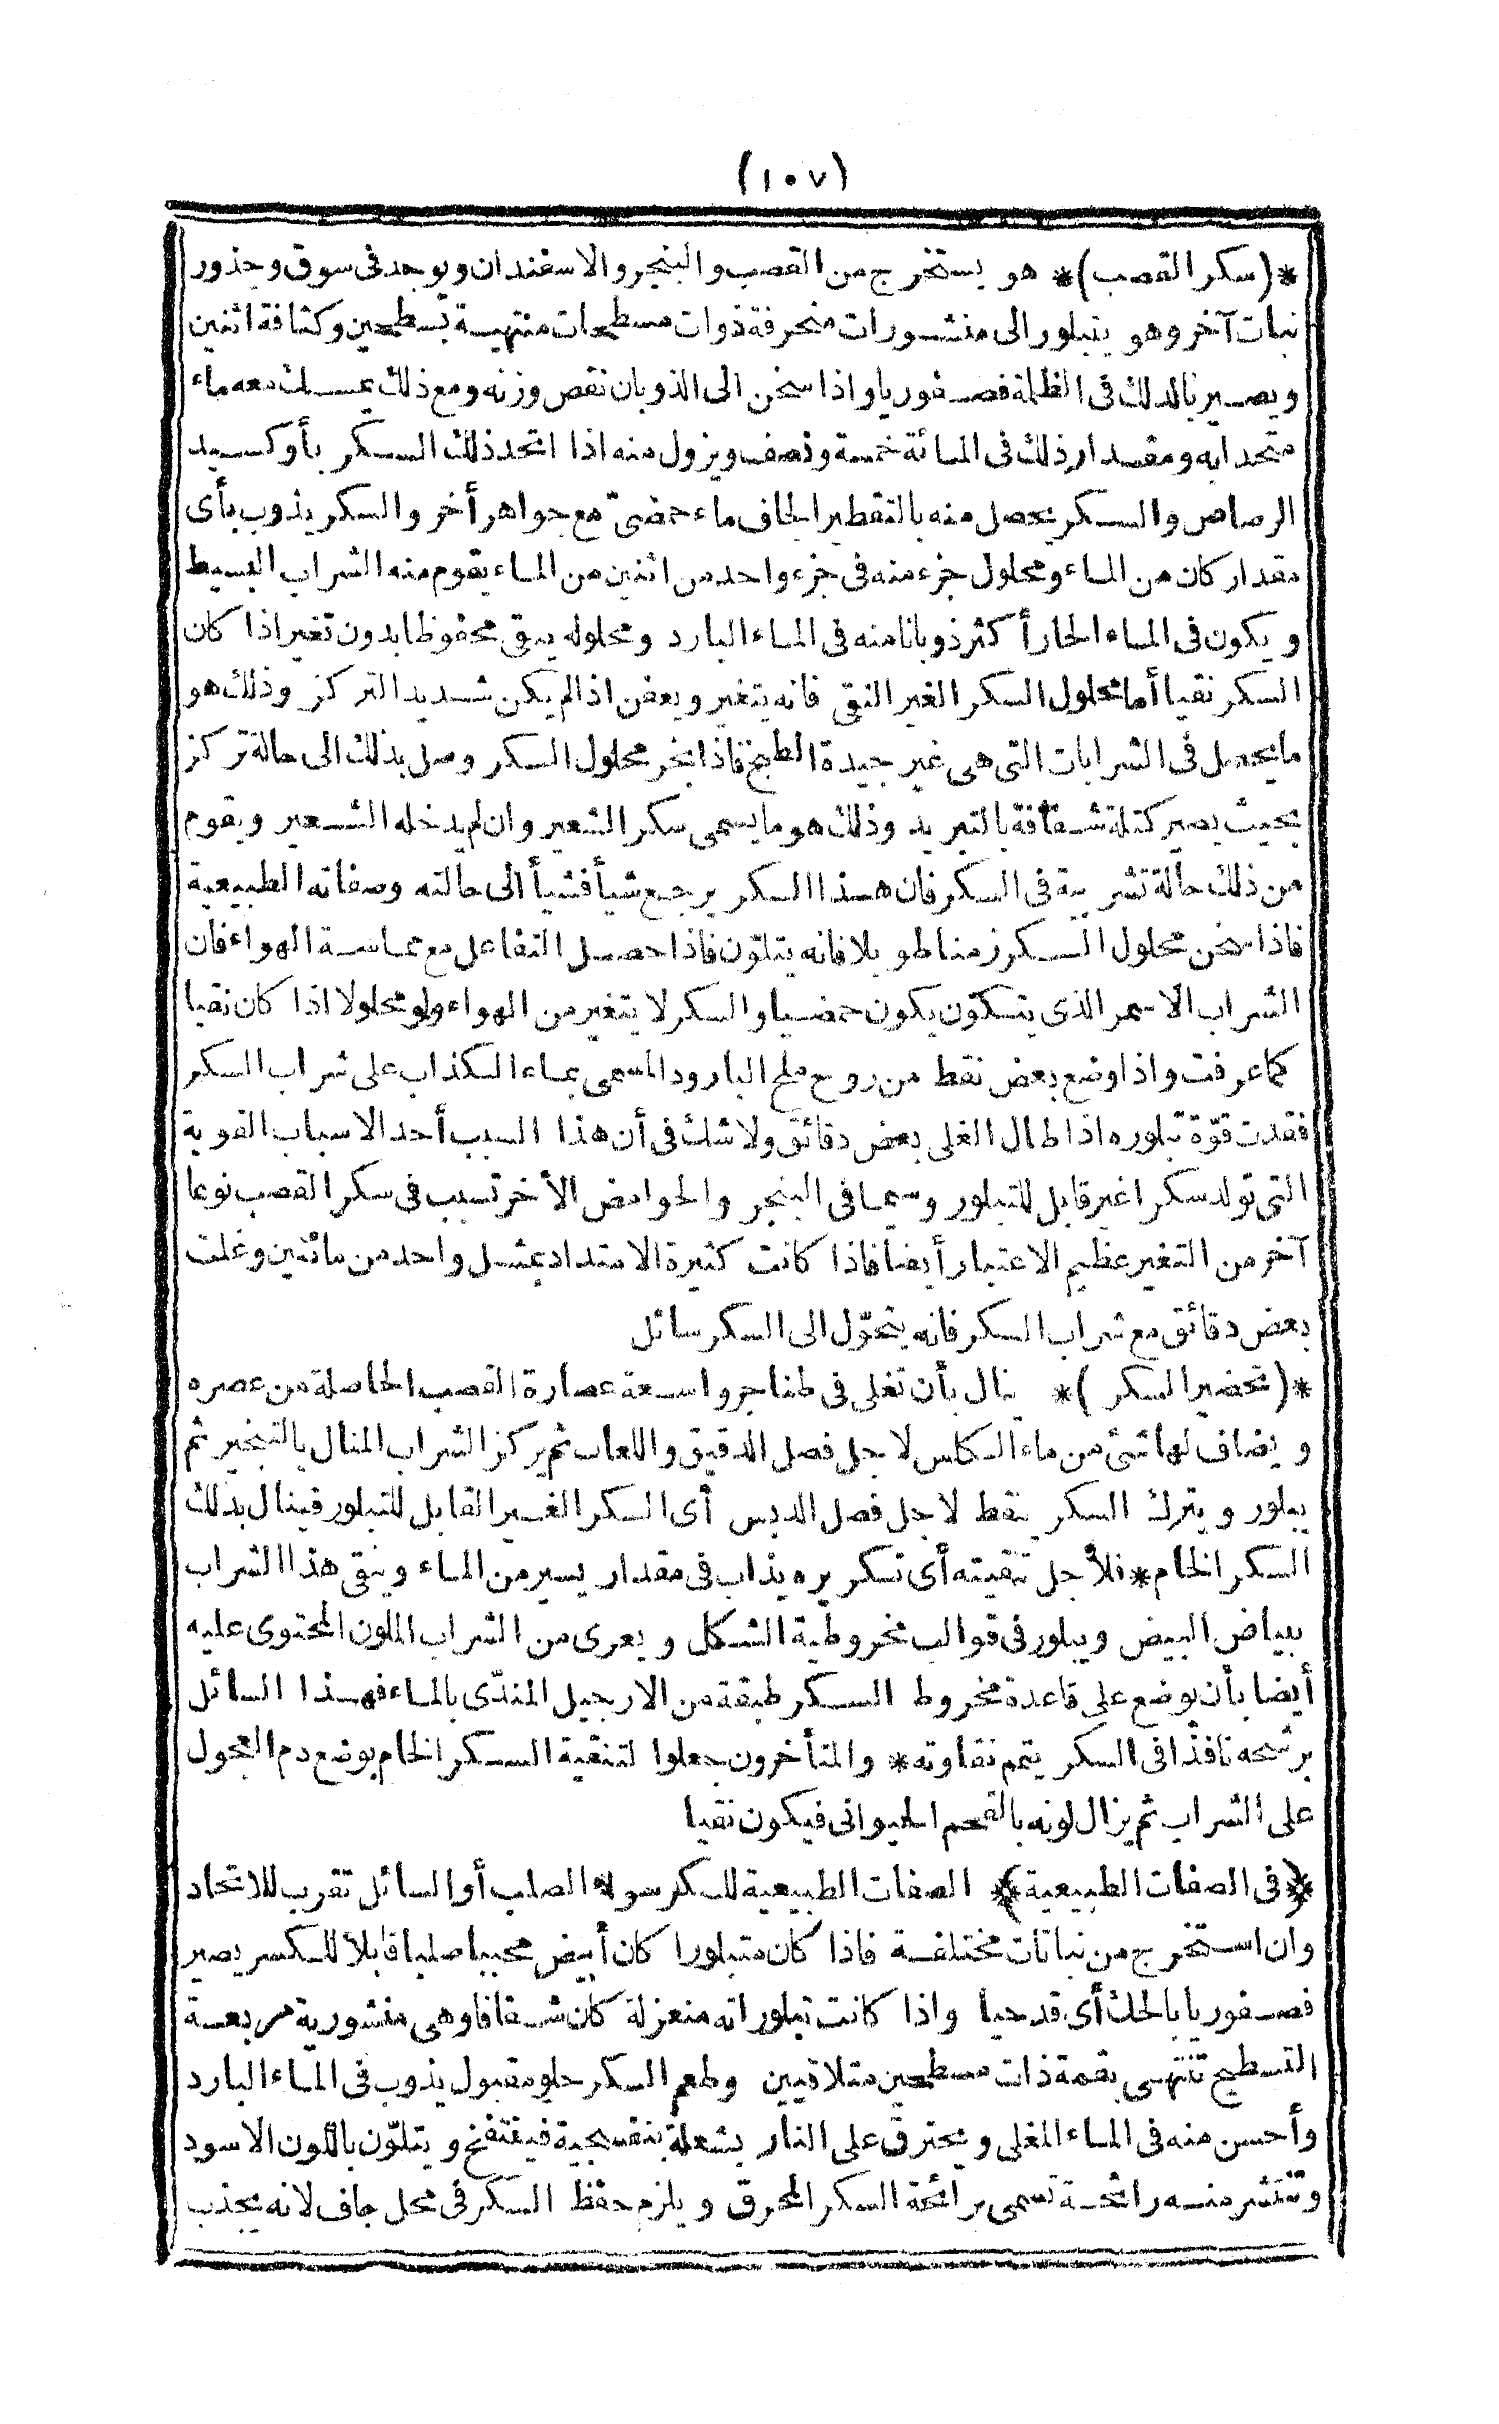 (١٠٧)
*(سكر القصب)* هو يستخرج من القصب والبنجر والاسفندان ويوجد فى سوق وجذور
نبات آخر وهو يتبلور الى منشورات منحرفة ذوات مسطحات منتهية بسطحين وكثافة اثنين
ويصير بالدلك فى الظلمة فصفوريا واذا سخن الى الذوبان نقص وزنه ومع ذلك يمسك معه ماء
متحدا به ومقدار ذلك فى المائة خمسة ونصف ويزول منه اذا اتحد ذلك السكر بأوكسيد
الرصاص والسكر يحصل منه بالتقطير الجاف ماء حمضىّ مع جواهر أخر والسكر يذوب بأى
مقدار كان من الماء ومحلول جزء منه فى جزء واحد من اثنين من الماء يقوم منه الشراب البسيط
ويكون فى الماء الحار أكثر ذوبانا منه فى الماء البارد ومحلوله يبقى محفوظا بدون تغير اذا كان
السكر نقيا أما محلول السكر الغير النقى فانه يتغير ويعفن اذا لم يكن شديد التركز وذلك هو
ما يحصل فى الشرابات التى هى غير جيدة الطبخ فاذا بخر محلول السكر وصل بذلك الى حالة تركز
بحيث يصير كتلة شفافة بالتبريد وذلك هو ما يسمى سكر الشعير وان لم يدخله الشعير ويقوم
من ذلك حالة تشربية فى السكر فان هذا السكر يرجع شيأ فشيأ الى حالته وصفاته الطبيعية
فاذا سخن محلول السكر زمنا طويلا فانه يتلوّن فاذا حصل التفاعل مع مماسة الهواء فان
الشراب الاسمر الذى يتكوّن يكون حمضيا والسكر لا يتغير من الهواء ولو محلولا اذا كان نقيا
كما عرفت واذا وضع بعض نقط من روح ملح البارود المسمى بماء الكذاب على شراب السكر
فقدت قوّة تبلوره اذا طال الغلى بعض دقائق ولا شك فى أن هذا السبب أحد الاسباب القوية
التى تولد سكرا غير قابل للتبلور وسيما فى البنجر والحوامض الأخر تسبب فى سكر القصب نوعا
آخر من التغير عظيم الاعتبار أيضا فاذا كانت كثيرة الامتداد بمثل واحد من مائتين وغلت
بعض دقائق مع شراب السكر فانه يتحوّل الى السكر سائل
*(تحضير السكر)* ينال بأن تغلى فى طناجر واسعة عصارة القصب الحاصلة من عصره
ويضاف لها شئ من ماء الكلس لاجل فصل الدقيق واللعاب ثم يركز الشراب المنال بالتبخير ثم
يبلور ويترك السكر ينقط لاجل فصل الدبس أى السكر الغير القابل للتبلور فينال بذلك
السكر الخام * فلأجل تنقيته أى تسكريره يذاب فى مقدار يسير من الماء وينقى هذا الشراب
ببياض البيض ويبلور فى قوالب مخروطية الشكل ويعرى من الشراب الملون المحتوى عليه
أيضا بأن يوضع على قاعدة مخروط السكر طبقة من الارجيل المندّى بالماء فهذا السائل
برشحه نافذا فى السكر يتمم نقاوته * والمتأخرون جعلوا لتنقية السكر الخام بوضع دم العجول
على الشراب ثم يزال لونه بالفحم الحيوانى فيكون نقيا
*(فى الصفات الطبيعية)* الصفات الطبيعية للسكر سواء الصلب أو السائل تقرب للاتحاد
وان استخرج من نباتات مختلفة فاذا كان متبلورا كان أبيض محببا صلبا قابلا للكسر يصير
فصفوريا بالحك أى قدحيا واذا كانت تبلوراته منعزلة كان شفافا وهى منشورية مربعة
التسطيح تنتهى بقمة ذات مسطحين متلاقيين وطعم السكر حلو مقبول يذوب فى الماء البارد
وأحسن منه فى الماء المغلى ويحترق على النار بشعلة بنفسجية فينتفخ ويتلوّن باللون الاسود
وتنتشر منه رائحة تسمى برائحة السكر المحرق ويلزم حفظ السكر فى محل جاف لانه يجذب